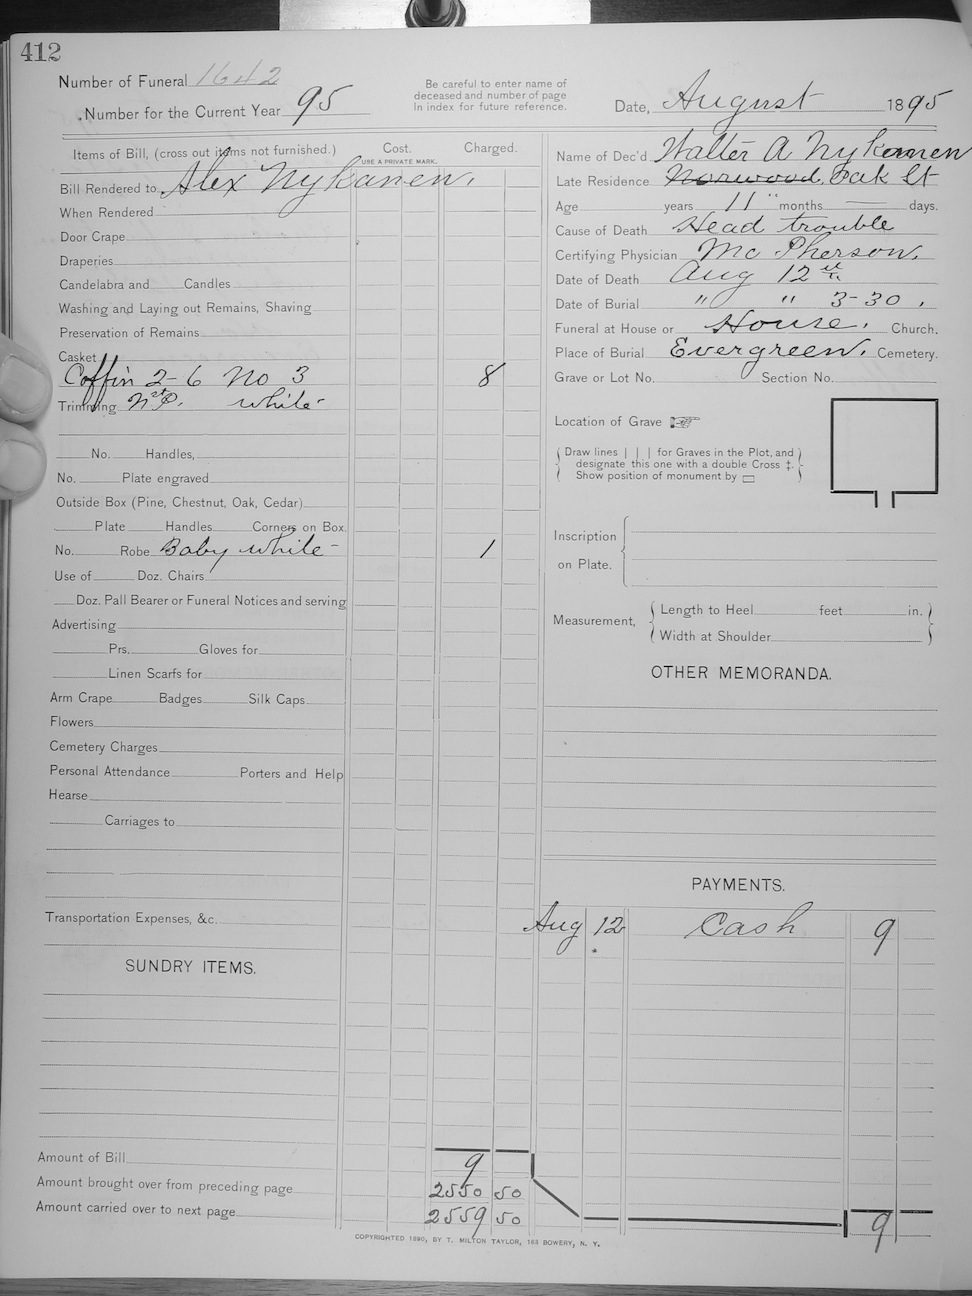 412
Number of Funeral 1642
Number for the Current Year 95
Be careful to enter name of
deceased and number of page
In index for future reference.
Date, August 1895
Items of Bill, (cross out items not furnished.) Cost. Charged.
USE A PRIVATE MARK.
Bill Rendered to Alex Nykanen.
When Rendered
Door Crape
Draperies
Candelabra and Candles
Washing and Laying out Remains, Shaving
Preservation of Remains
Casket
Coffin 2-6 No 3 8
Trimming white
No. Handles,
No. Plate engraved
Outside Box (Pine, Chestnut, Oak, Cedar)
Plate Handles Corners on Box.
No. Robe Baby white - 1
Use of Doz. Chairs
Doz. Pall Bearer or Funeral Notices and serving
Advertising
Prs. Gloves for
Linen Scarfs for
Arm Crape Badges Silk Caps
Flowers
Cemetery Charges
Personal Attendance Porters and Help
Hearse
Carriages to
Transportation Expenses, &c.
SUNDRY ITEMS.
Amount of Bill 9
Amount brought over from preceding page 2550 50
Amount carried over to next page 2559 50
Name of Dec'd Walter A Nykanen
Late Residence Norwood, Oak St
Age years 11 " months — days.
Cause of Death Head trouble
Certifying Physician Mc Pherson.
Date of Death Aug 12
Date of Burial " " 3-30.
Funeral at House or House. Church.
Place of Burial Evergreen. Cemetery.
Grave or Lot No. Section No.
Location of Grave ☞
Draw lines | | | for Graves in the Plot, and
designate this one with a double Cross ‡.
Show position of monument by ▭
Inscription
on Plate.
Measurement, Length to Heel feet in.
Width at Shoulder
OTHER MEMORANDA.
PAYMENTS.
Aug 12 Cash 9
9
COPYRIGHTED 1890, BY T. MILTON TAYLOR, 163 BOWERY, N. Y.